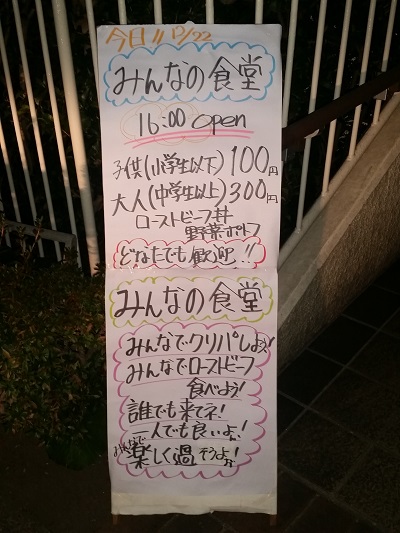 今日!! 12/22
みんなの食堂
16:00 open
子供(小学生以下)100円
大人(中学生以上)300円
ローストビーフ丼
野菜ポトフ
どなたでも歓迎!!
みんなの食堂
みんなでクリパしよう!
みんなでローストビーフ
食べよう!
誰でも来てネ!
一人でも良いよ!
みんなで
楽しく過そうよ!